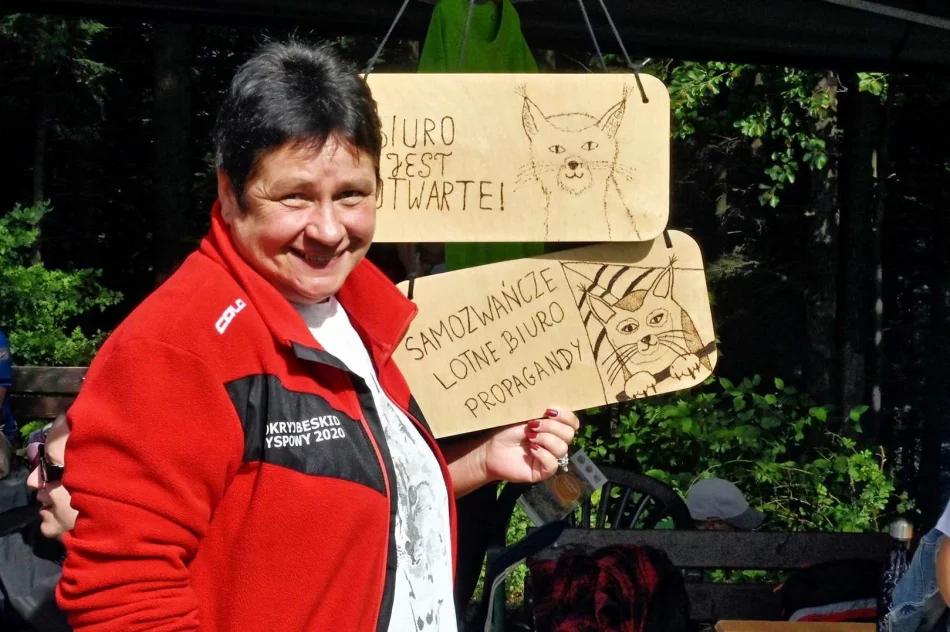 BIURO
JEST
OTWARTE!
SAMOZWAŃCZE
LOTNE BIURO
PROPAGANDY
COLO
ODKRYJ BESKID
WYSPOWY 2020